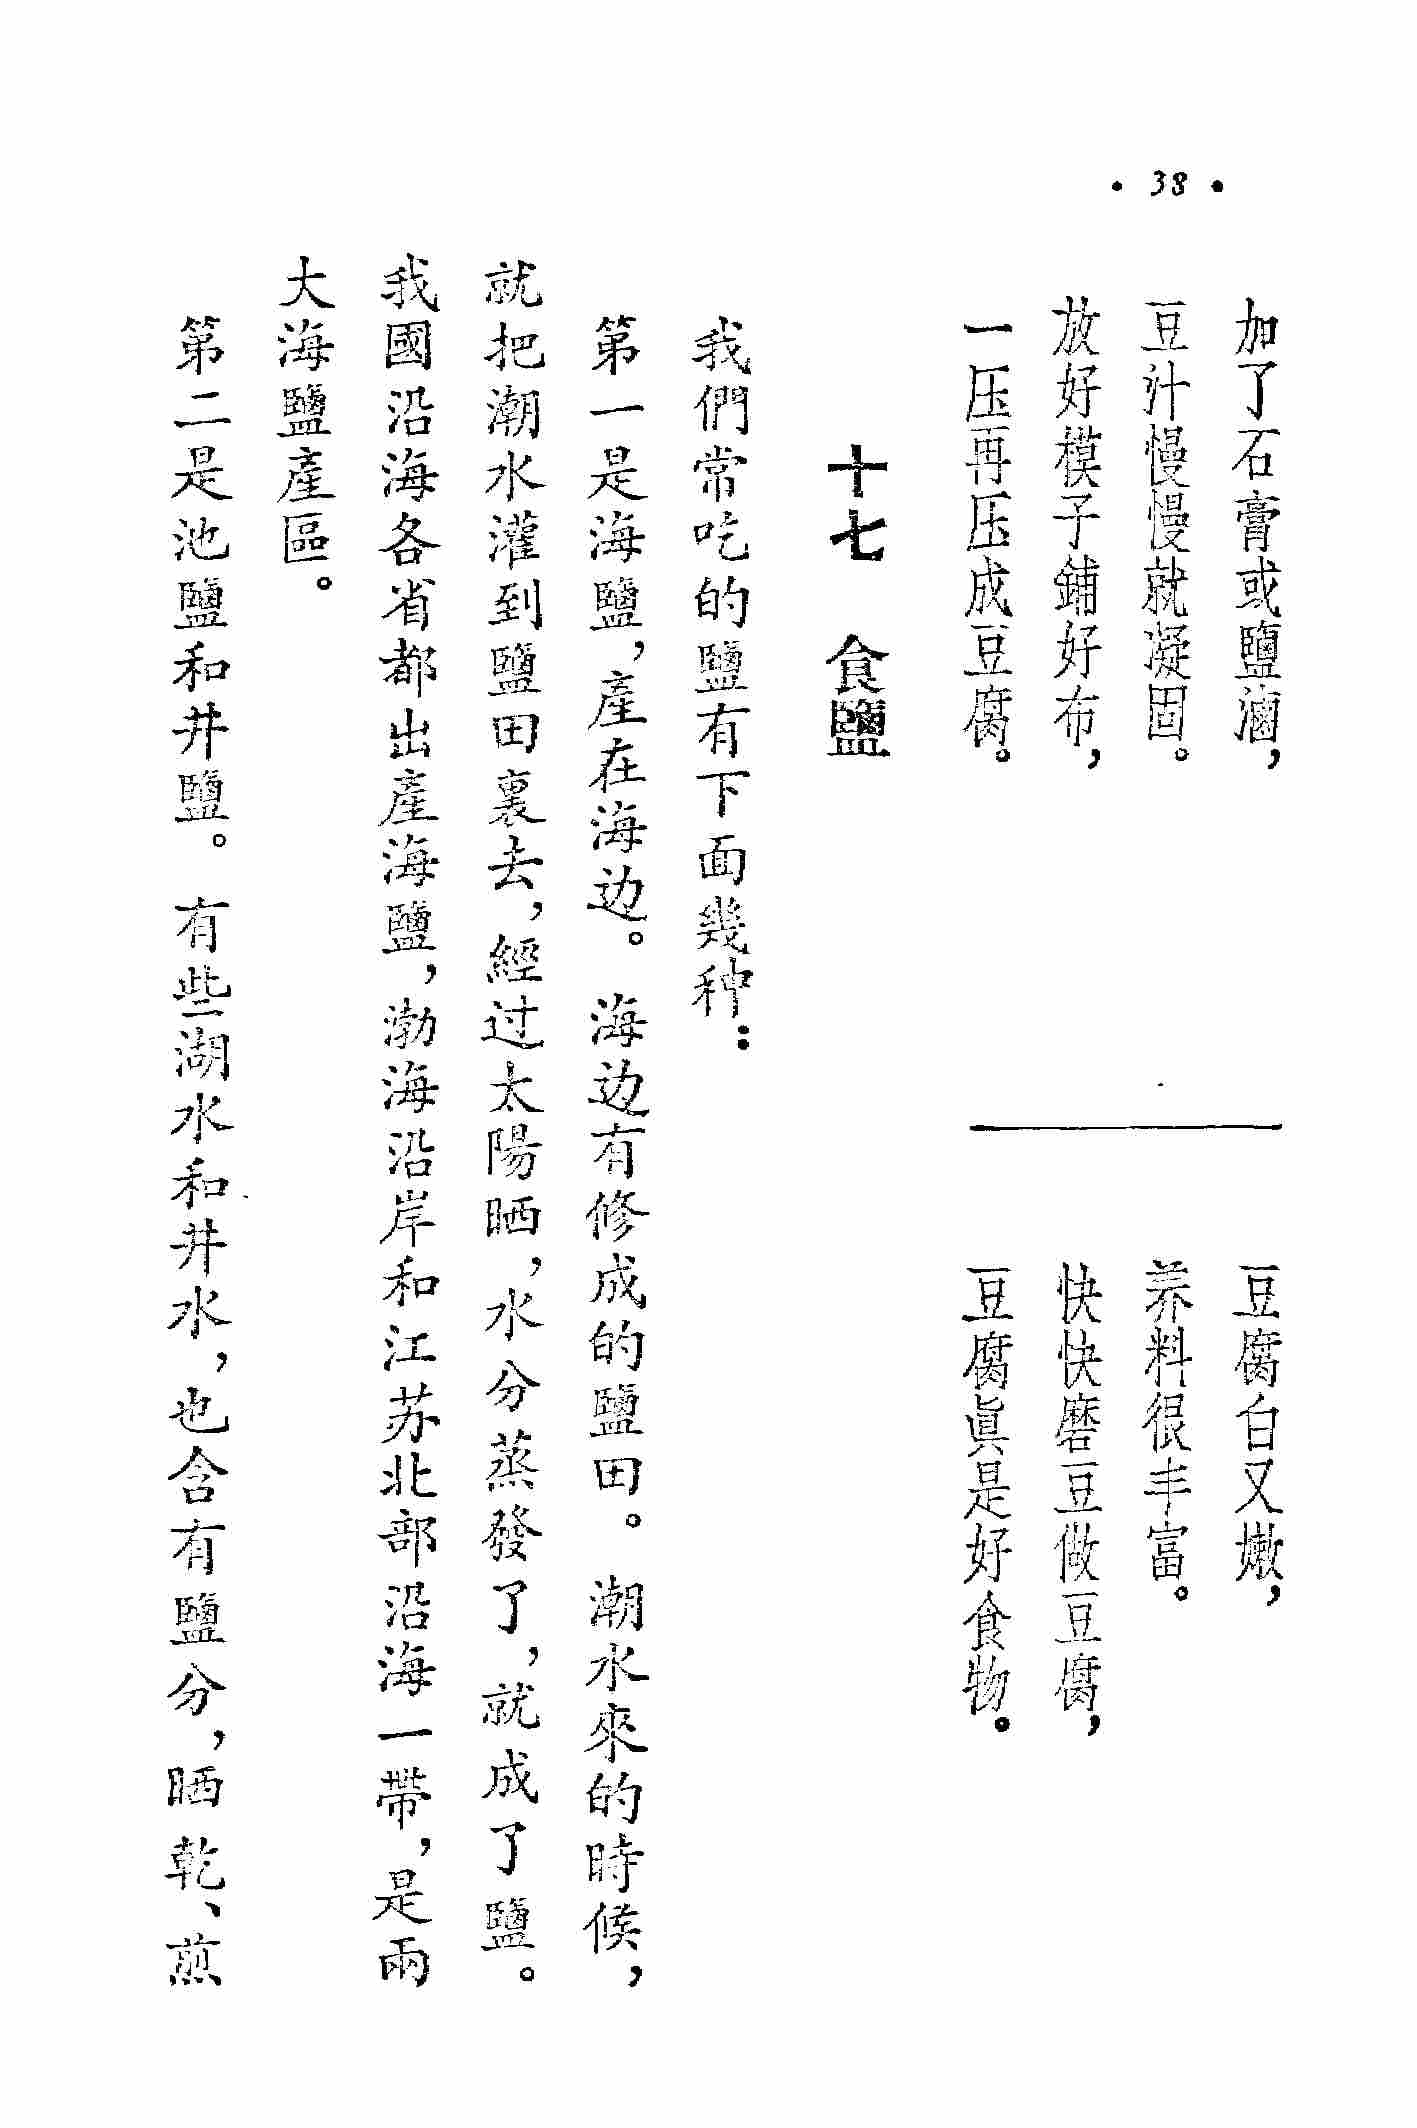 • 38 •
加了石膏或鹽滷，
豆汁慢慢就凝固。
放好模子鋪好布，
一压再压成豆腐。
豆腐白又嫩，
养料很丰富。
快快磨豆做豆腐，
豆腐眞是好食物。
十七　食鹽
我們常吃的鹽有下面幾种：
第一是海鹽，產在海边。海边有修成的鹽田。潮水來的時候，
就把潮水灌到鹽田裏去，經过太陽晒，水分蒸發了，就成了鹽。
我國沿海各省都出產海鹽，渤海沿岸和江苏北部沿海一帶，是兩
大海鹽產區。
第二是池鹽和井鹽。有些湖水和井水，也含有鹽分，晒乾、煎